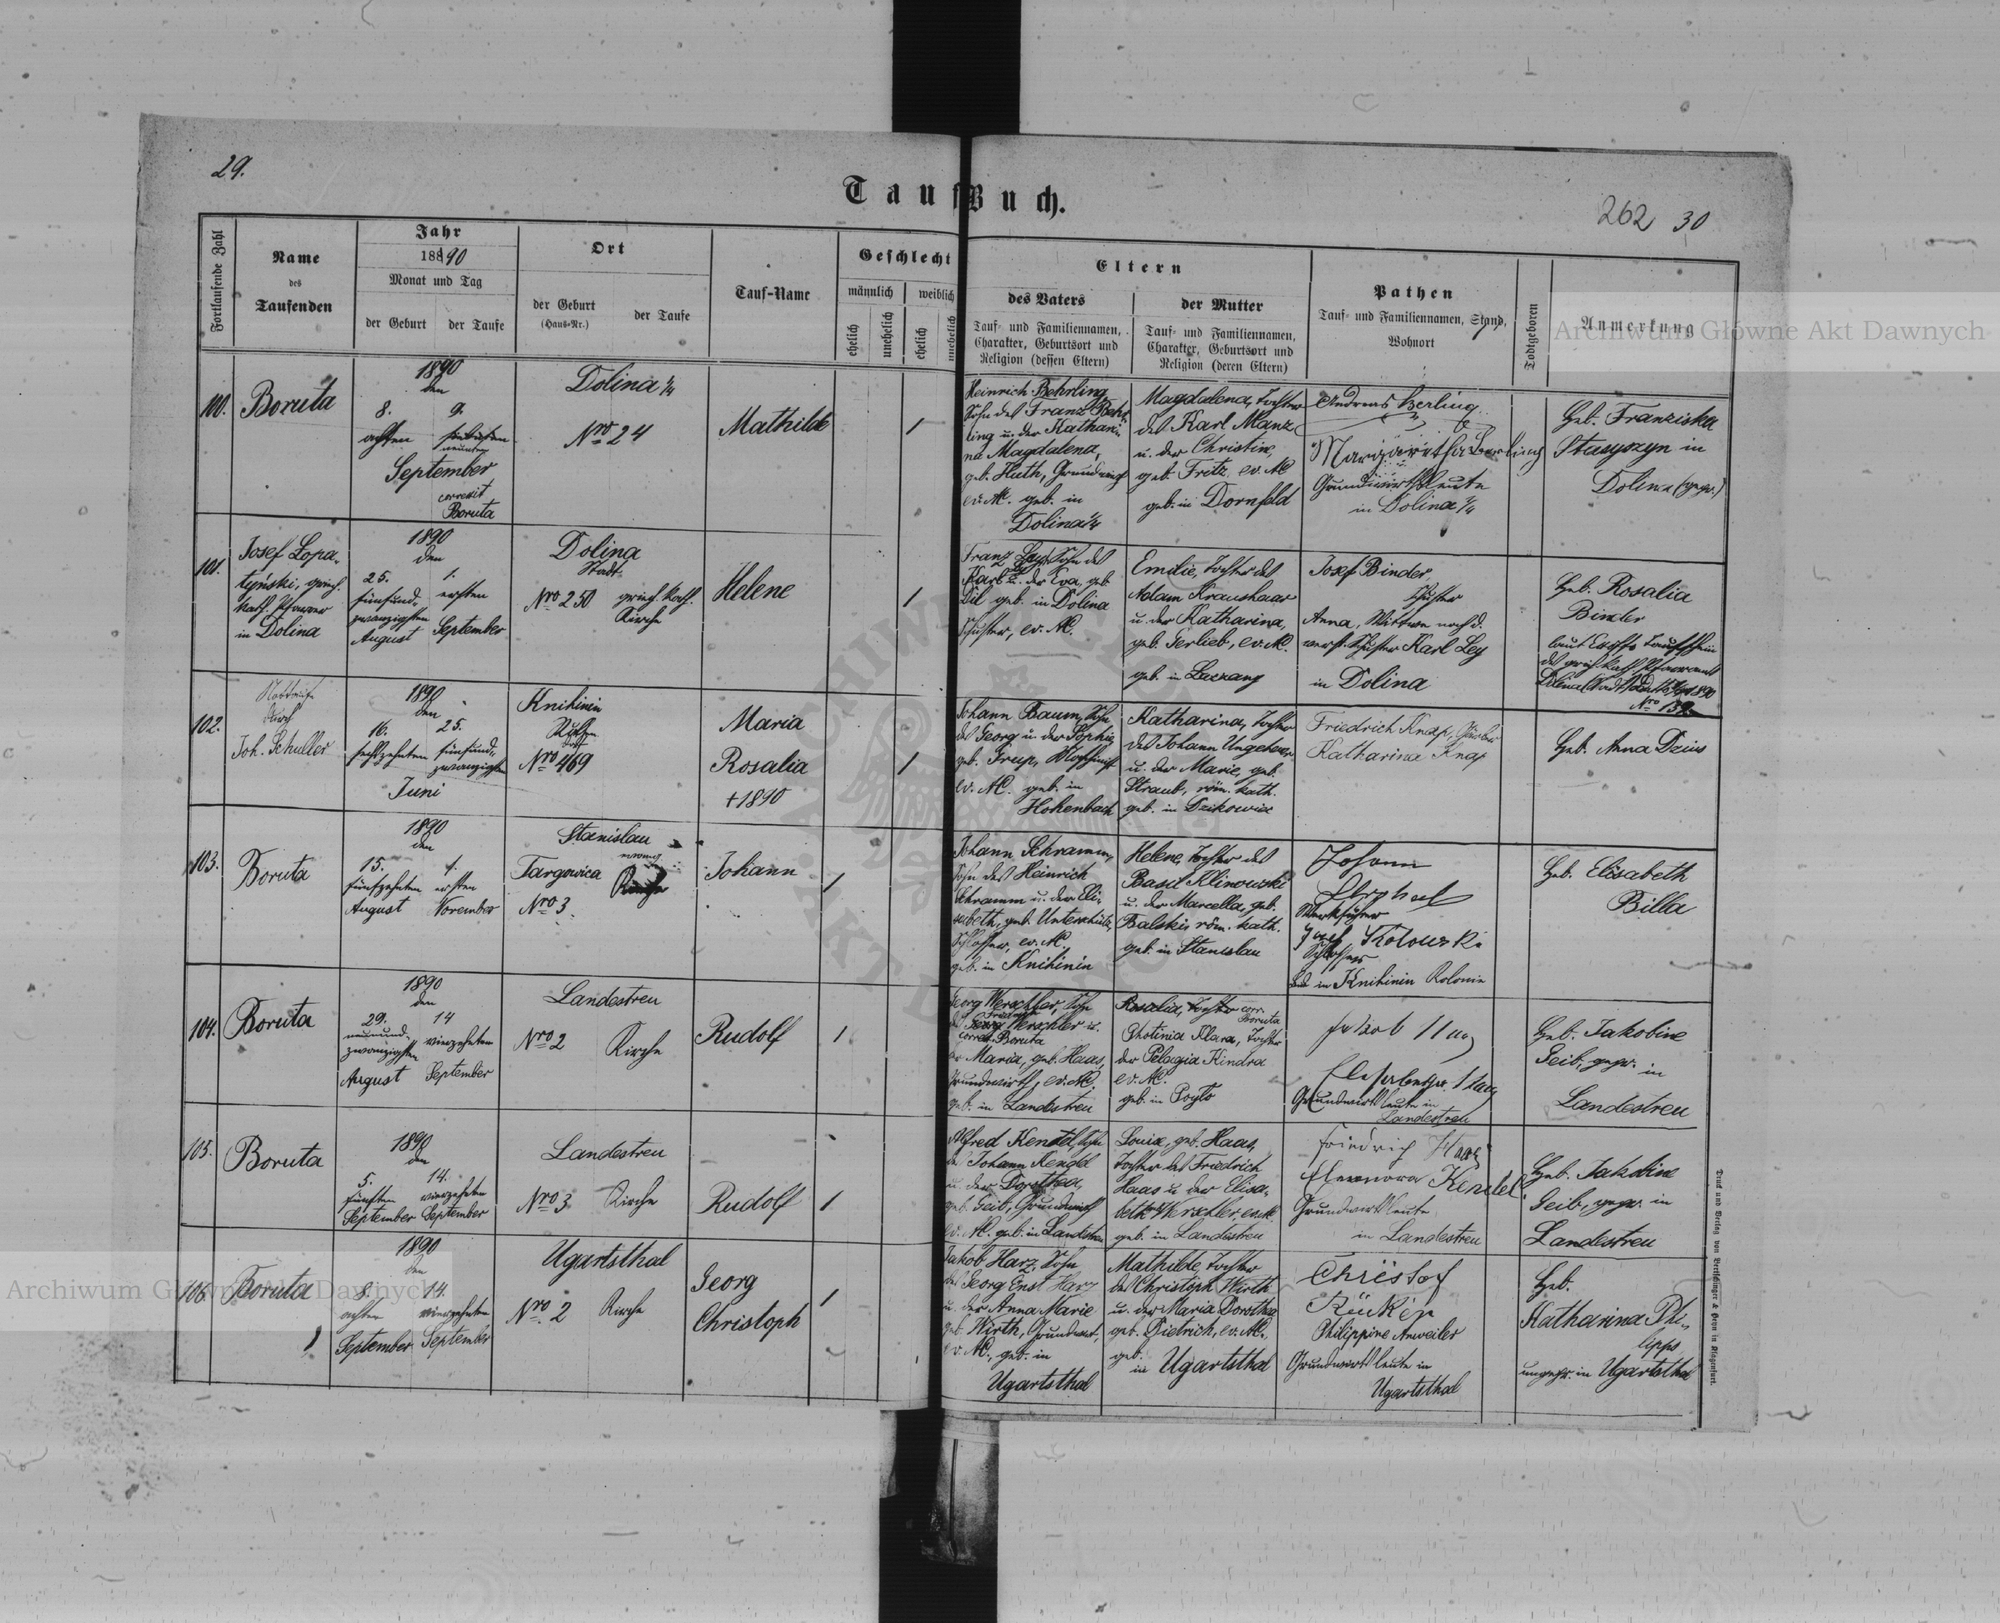 29.
Tauf Buch.
262 30
Fortlaufende Zahl
Name
des
Taufenden
Jahr
18890
Monat und Tag
der Geburt
der Taufe
Ort
der Geburt
(Haus-Nr.)
der Taufe
Tauf-Name
Geschlecht
männlich
weiblich
ehelich
unehelich
ehelich
unehelich
Eltern
des Vaters
Tauf- und Familiennamen,
Charakter, Geburtsort und
Religion (dessen Eltern)
der Mutter
Tauf- und Familiennamen,
Charakter, Geburtsort und
Religion (deren Eltern)
Pathen
Tauf- und Familiennamen, Stand,
Wohnort
Todtgeboren
Anmerkung
Archiwum Główne Akt Dawnych
100.
Boruta
1890
den
8. 9.
achten
neunten
September
correxit
Boruta
Dolina 1/4
Nro 24
Mathilde
1
Heinrich Behrling
Sohn des Franz Behr-
ling u. der Kathari-
na Magdalena,
geb. Huth, Grundwirth
ev. AC. geb. in
Dolina 1/4
Magdalena, Tochter
des Karl Manz
u. der Christine,
geb. Fritz, ev. AC
geb. in Dornfeld
Andreas Berling
Margaretha Berling
Grundwirthsleute
in Dolina 1/4
Heb. Franziska
in
Dolina (gepr.)
101.
Josef Lopa-
tyński, griech.
kath. Pfarrer
in Dolina
1890
den
25. 1.
fünfund- ersten
zwanzigsten
August September
Dolina
Stadt
Nro 250 griech. kath.
Kirche
Helene
1
Franz Ley, Sohn des
Karl u. der Eva, geb.
Dil geb. in Dolina
Schuster, ev. AC.
Emilie, Tochter des
Adam Kraushaar
u. der Katharina,
geb. Gerlieb, ev. AC.
geb. in
Josef Binder
Schuster
Anna, Wittwe nach d.
verst. Schuster Karl Ley
in Dolina
Heb. Rosalia
Binder
laut Taufschein
des griech. kath. Pfarramts
Dolina
Nro
102.
Nottaufe
durch
Joh. Schuller
1890
den
16. 25.
sechzehnten fünfund-
zwanzigsten
Juni
Knihinin
Nro 469
Maria
Rosalia
+ 1890
1
Johann Baum, Sohn
des Georg u. der Sophie,
geb.
ev. AC. geb. in
Hohenbach
Katharina, Tochter
des Johann Ungeheuer
u. der Marie, geb.
Straub, röm. kath.
geb. in Dzikowice
Friedrich Knap,
Katharina Knap
Heb. Anna Dzius
103.
Boruta
1890
den
15. 1.
fünfzehnten ersten
August November
Stanislau
Targowica Kirche
Nro 3.
Johann
1
Johann Schramm,
Sohn des Heinrich
Schramm u. der Eli-
sabeth, geb. Unterschütz,
Schlosser, ev. AC.
geb. in Knihinin
Helene, Tochter des
Basil Klinowski
u. der Marcella, geb.
Balskis röm. kath.
geb. in Stanislau
Johann
Werkführer
Josef
Schlosser
Beide in Knihinin Kolonie
Heb. Elisabeth
Billa
104.
Boruta
1890
den
29. 14
neunund- vierzehnten
zwanzigsten
August September
Landestreu
Nro 2 Kirche
Rudolf
1
Georg Werschler, Sohn
Friedrich
des Georg Werschler u.
correx. Boruta
der Maria, geb. Haas,
Grundwirth, ev. AC.
geb. in Landestreu
Rosalia, Tochter corr.
Boruta
Photinia Klara, Tochter
der Pelagia Kindra
ev. AC.
geb. in Poylo
Jakob Haas
Elisabetha Haas
Grundwirthleute in
Landestreu
Heb. Jakobine
Geib, gepr. in
Landestreu
105.
Boruta
1890
den
5. 14.
fünften vierzehnten
September September
Landestreu
Nro 3 Kirche
Rudolf
1
Alfred Kendel, Sohn
des Johann Kendel
u. der Dorothea,
geb. Geib, Grundwirth
ev. AC. geb. in Landestreu
Louise, geb. Haas,
Tochter des Friedrich
Haas u. der Elisa-
beth Werschler,
geb. in Landestreu
Friedrich Haas
Eleonora Kendel
Grundwirthleute
in Landestreu
Heb. Jakobine
Geib, gepr. in
Landestreu
106.
Boruta
1890
den
8. 14.
achten vierzehnten
September September
Ugartsthal
Nro 2 Kirche
Georg
Christoph
1
Jakob Harz, Sohn
des Georg Ernst Harz
u. der Anna Marie
geb. Wirth, Grundwirt,
ev. AC., geb. in
Ugartsthal
Mathilde, Tochter
des Christoph Wirth
u. der Maria Dorothea
geb. Dietrich, ev. AC.
geb.
in Ugartsthal
Christof
Philippine Anweiler
Grundwirthleute in
Ugartsthal
Heb.
Katharina Phi-
lipps
ungepr. in Ugartsthal
Archiwum Główne Akt Dawnych
Druck und Verlag von Bertschinger & Heyn in Klagenfurt.